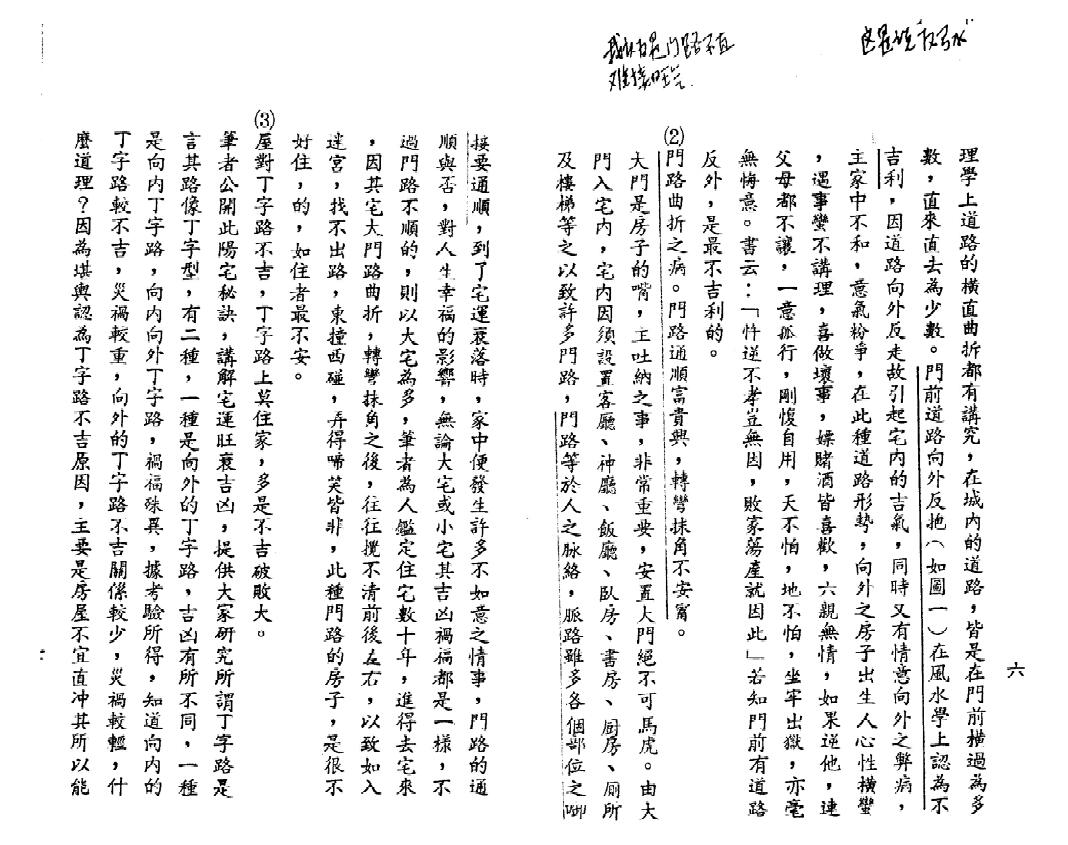 这是说"反弓水"
我以为是门路不直
难接旺气
六
理學上道路的橫直曲折都有講究，在城內的道路，皆是在門前橫過為多
數，直來直去為少數。門前道路向外反抱（如圖一）在風水學上認為不
吉利，因道路向外反走故引起宅內的吉氣，同時又有情意向外之弊病，
主家中不和，意氣紛爭，在此種道路形勢，向外之房子出生人心性橫蠻
，遇事蠻不講理，喜做壞事，嫖賭酒皆喜歡，六親無情，如果逆他，連
父母都不讓，一意孤行，剛愎自用，天不怕，地不怕，坐牢出獄，亦毫
無悔意。書云：「忤逆不孝豈無因，敗家蕩產就因此」若知門前有道路
反外，是最不吉利的。
(2)門路曲折之病。門路通順富貴興，轉彎抹角不安甯。
大門是房子的嘴，主吐納之事，非常重要，安置大門絕不可馬虎。由大
門入宅內，宅內因須設置客廳、神廳、飯廳、臥房、書房、厨房、厠所
及樓梯等之以致許多門路，門路等於人之脉絡，脈路雖多各個部位之啣
接要通順，到了宅運衰落時，家中便發生許多不如意之情事，門路的通
順與否，對人生幸福的影響，無論大宅或小宅其吉凶禍福都是一樣，不
過門路不順的，則以大宅為多，筆者為人鑑定住宅數十年，進得去宅來
，因其宅大門路曲折，轉彎抹角之後，往往攪不清前後左右，以致如入
迷宮，找不出路，東撞西碰，弄得啼笑皆非，此種門路的房子，是很不
好住，的，如住者最不安。
(3)屋對丁字路不吉，丁字路上莫住家，多是不吉破敗大。
筆者公開此陽宅秘訣，講解宅運旺衰吉凶，提供大家研究所謂丁字路是
言其路像丁字型，有二種，一種是向外的丁字路，吉凶有所不同，一種
是向內丁字路，向內向外丁字路，禍福殊異，據考驗所得，知道向內的
丁字路較不吉，災禍較重，向外的丁字路不吉關係較少，災禍較輕，什
麼道理？因為堪輿認為丁字路不吉原因，主要是房屋不宜直冲其所以能